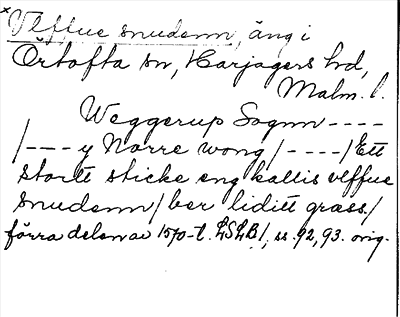 × Vlffue snudenn, äng i
Örtofta sn, Harjagers hd,
Malm. l.
Weggerup Sognn ----
/--- y Norre wong /----/ Ett
stortt sticke eng kallis vlffue
snudenn / ber liditt græss /
förra delen av 1570-t. LSLB 1, ss. 92, 93. orig.